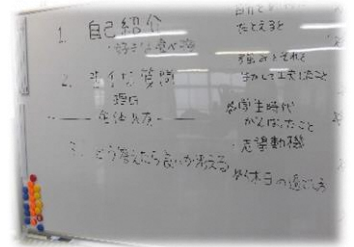 1. 自己紹介
・好きな食べ物
2. 苦手な質問
理由
全体共有
3. どう答えたら良いか考える
たとえると
強みとそれを
生かして工夫したこと
学生時代
がんばったこと
・志望動機
休日の過ごし方